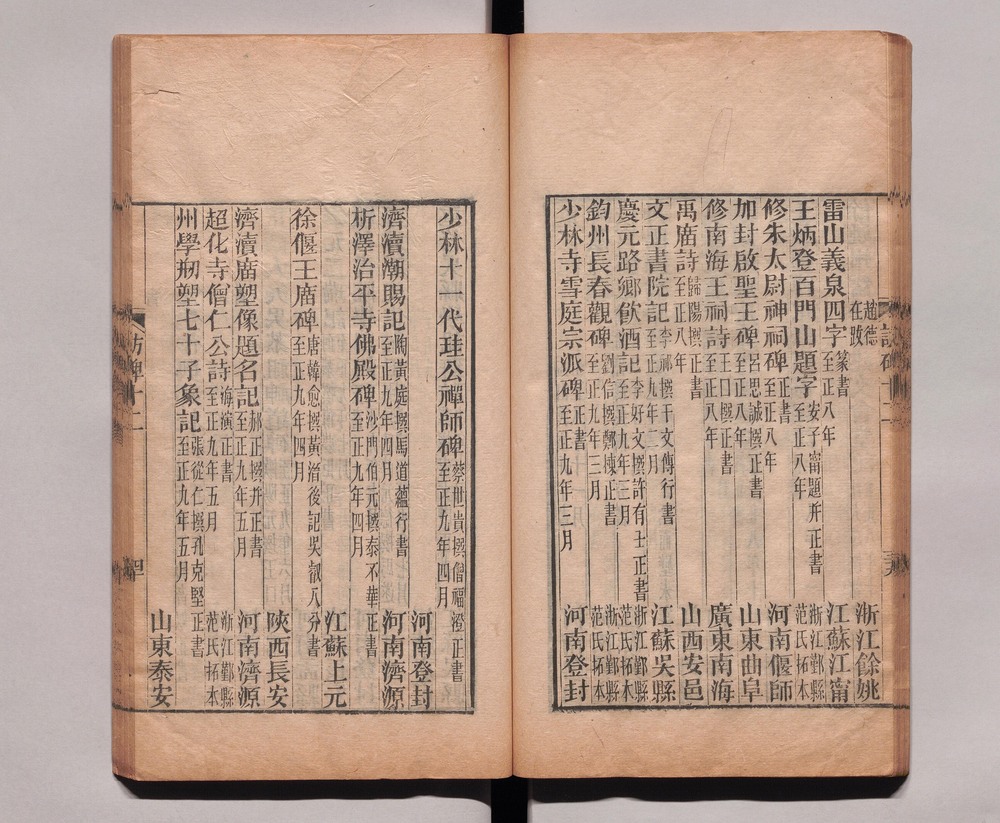 趙德在䟦　浙江餘姚
雷山義泉四字篆書至正八年　江蘇江甯
王炳登百門山題字安子甯題并正書至正八年　浙江鄞縣范氏拓本
修朱太尉神祠碑正書至正八年　河南偃師
加封啟聖王碑呂思誠撰正書至正八年　山東曲阜
修南海王祠詩王口撰正書至正八年　廣東南海
禹庿詩歸暘正書至正八年　山西安邑
文正書院記李祁撰干文傳行書至正九年二月　江蘇吳縣
慶元路鄉飲酒記李好文撰許有壬正書至正九年三月　浙江鄞縣范氏拓本
鈞州長春觀碑劉信撰正書至正九年三月　浙江鄞縣范氏拓本
少林寺雪庭宗派碑正書至正九年三月　河南登封
少林十一代珪公禪師碑蔡世貴撰僧福澄正書至正九年四月　河南登封
濟瀆潮賜記陶黃庭撰馬道蘊行書至正九年四月　河南濟源
析澤治平寺佛殿碑沙門伯元撰泰不華正書至正九年四月　江蘇上元
徐偃王庿碑唐韓愈撰黃溍後記吳叡八分書至正九年四月　陝西長安
濟瀆庿塑像題名記郝正撰并正書至正九年五月　河南濟源
超化寺僧仁公詩海演正書至正九年五月　浙江鄞縣范氏拓本
州學刱塑七十子象記張從仁撰孔克堅正書至正九年五月　山東泰安
訪碑十二